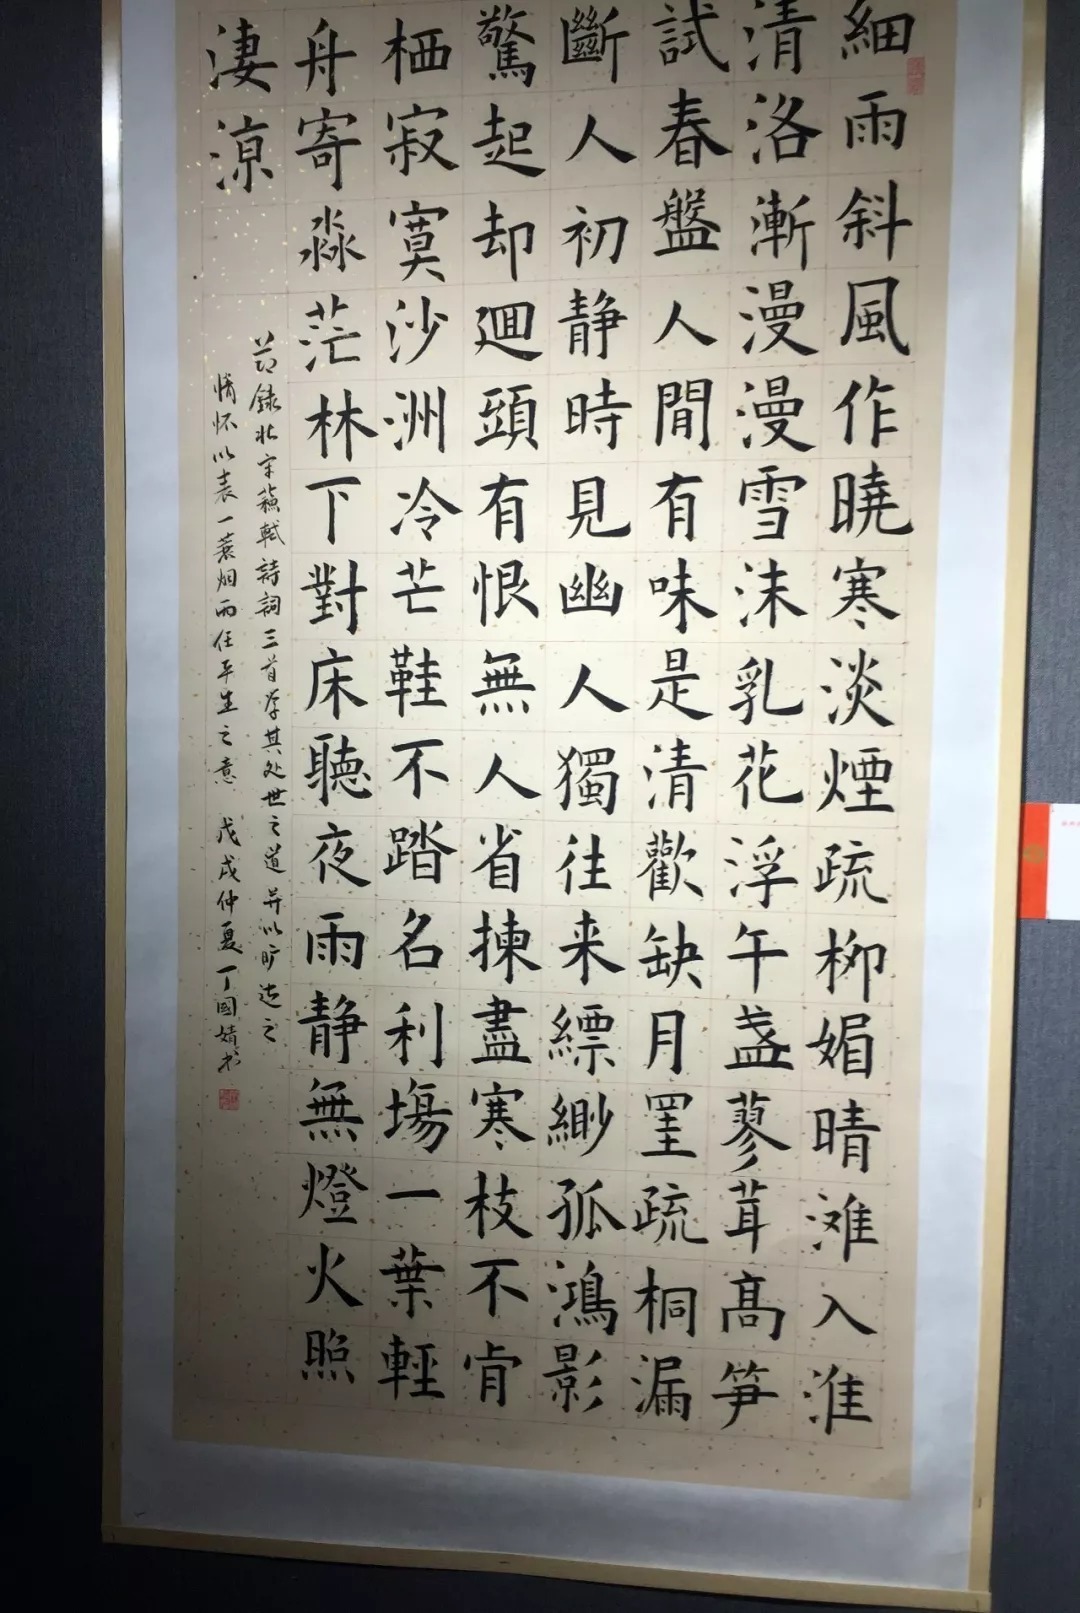 細雨斜風作曉寒淡煙疏柳媚晴滩入淮
清洛漸漫漫雪沫乳花浮午盏蓼茸髙笋
試春盤人間有味是清歡缺月罣疏桐漏
斷人初静時見幽人獨往来縹緲孤鴻影
驚起却迴頭有恨無人省揀盡寒枝不肯
栖寂寞沙洲冷芒鞋不踏名利場一葉輕
舟寄淼茫林下對床聽夜雨静無燈火照
淒涼
节録北宋蘇軾詩詞三首享其处世之道并以旷达之
情怀以表一蓑烟雨任平生之意 戊戌仲夏丁國婧书